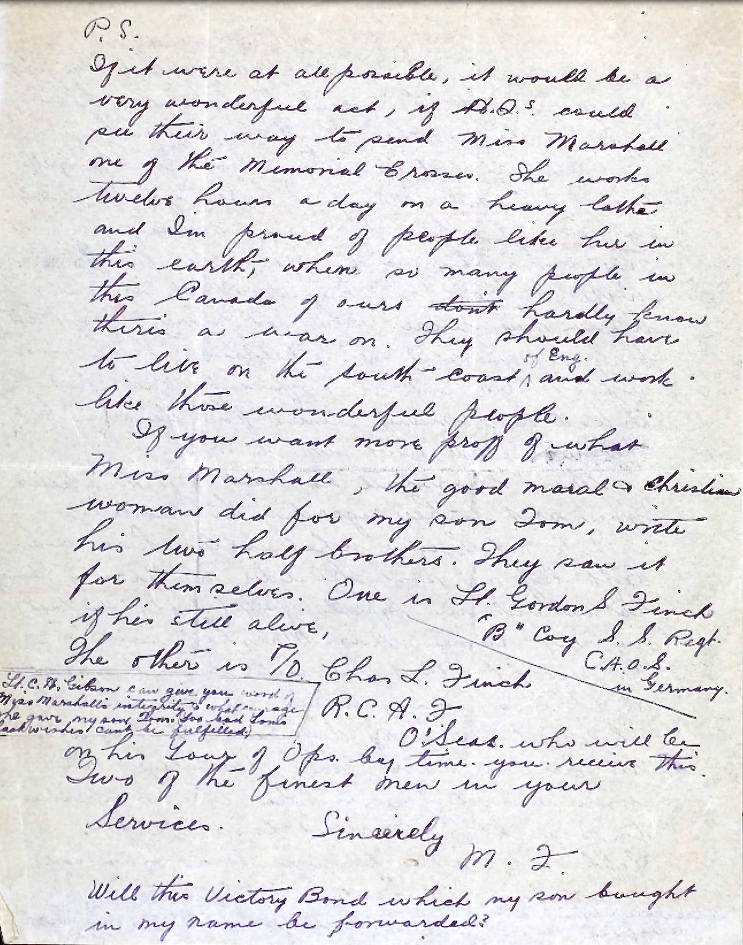 P.S.
If it were at all possible, it would be a
very wonderful act, if H.Q.s could
see their way to send Miss Marshall
one of the Memorial Crosses. She works
twelve hours a day on a heavy lathe
and I'm proud of people like her in
this earth, when so many people in
this Canada of ours don't hardly know
there's a war on. They should have
to live on the south coast of Eng. and work
like those wonderful people.
If you want more proff of what
Miss Marshall, the good moral & christian
woman did for my son Tom, write
his two half brothers. They saw it
for themselves. One is Lt. Gordon S Finch
if he's still alive,
"B" Coy S. S. Regt.
C.A.O.S.
in Germany.
The other is P/O Chas L. Finch
R.C.A.F
Lt. C.H. Gibson can give you word of
Miss Marshall's integrity & what courage
she gave my son Tom. (Too bad Tom's
wishes can't be fulfilled)
O'Seas. who will be
on his Tour of Ops. by time you receive this.
Two of the finest men in your
Services.
Sincerely
M. F.
Will this Victory Bond which my son bought
in my name be forwarded?